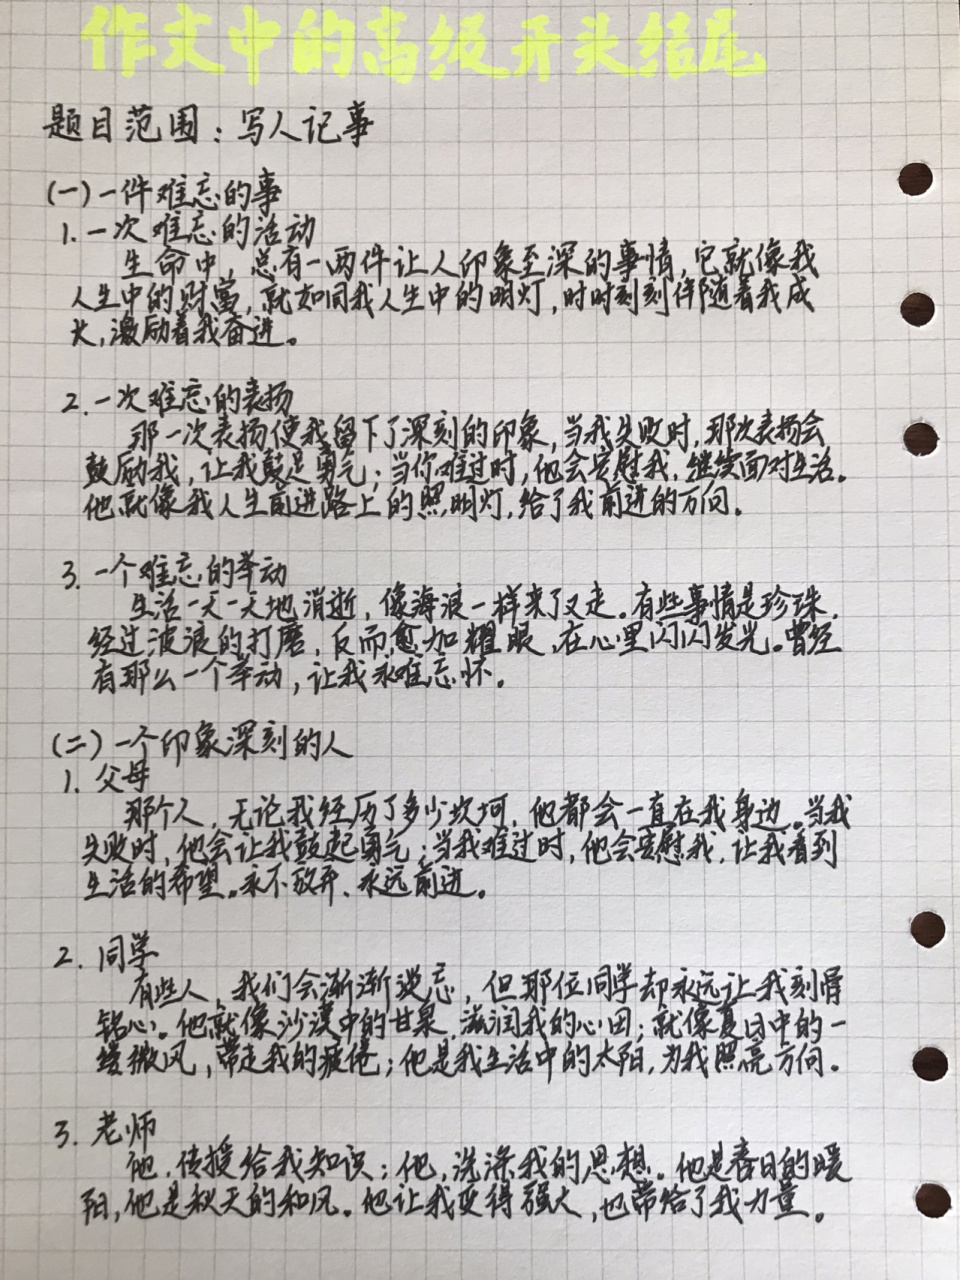 作文中的高级开头结尾
题目范围：写人记事
(一)一件难忘的事
1.一次难忘的活动
生命中，总有一两件让人印象至深的事情，它就像我
人生中的财富，就如同我人生中的明灯，时时刻刻伴随着我成
长，激励着我奋进。
2.一次难忘的表扬
那一次表扬使我留下了深刻的印象，当我失败时，那次表扬会
鼓励我，让我鼓足勇气；当你难过时，他会安慰我，继续面对生活。
他就像我人生前进路上的照明灯，给了我前进的方向。
3.一个难忘的举动
生活一天一天地消逝，像海浪一样来了又走。有些事情是珍珠，
经过波浪的打磨，反而愈加耀眼，在心里闪闪发光。曾经
有那么一个举动，让我永难忘怀。
(二)一个印象深刻的人
1.父母
那个人，无论我经历了多少坎坷，他都会一直在我身边。当我
失败时，他会让我鼓起勇气；当我难过时，他会安慰我，让我看到
生活的希望。永不放弃、永远前进。
2.同学
有些人，我们会渐渐淡忘，但那位同学却永远让我刻骨
铭心。他就像沙漠中的甘泉，滋润我的心田；就像夏日中的一
缕微风，带走我的疲倦；他是我生活中的太阳，为我照亮方向。
3.老师
他，传授给我知识；他，洗涤我的思想。他是春日的暖
阳，他是秋天的和风。他让我变得强大，也带给了我力量。